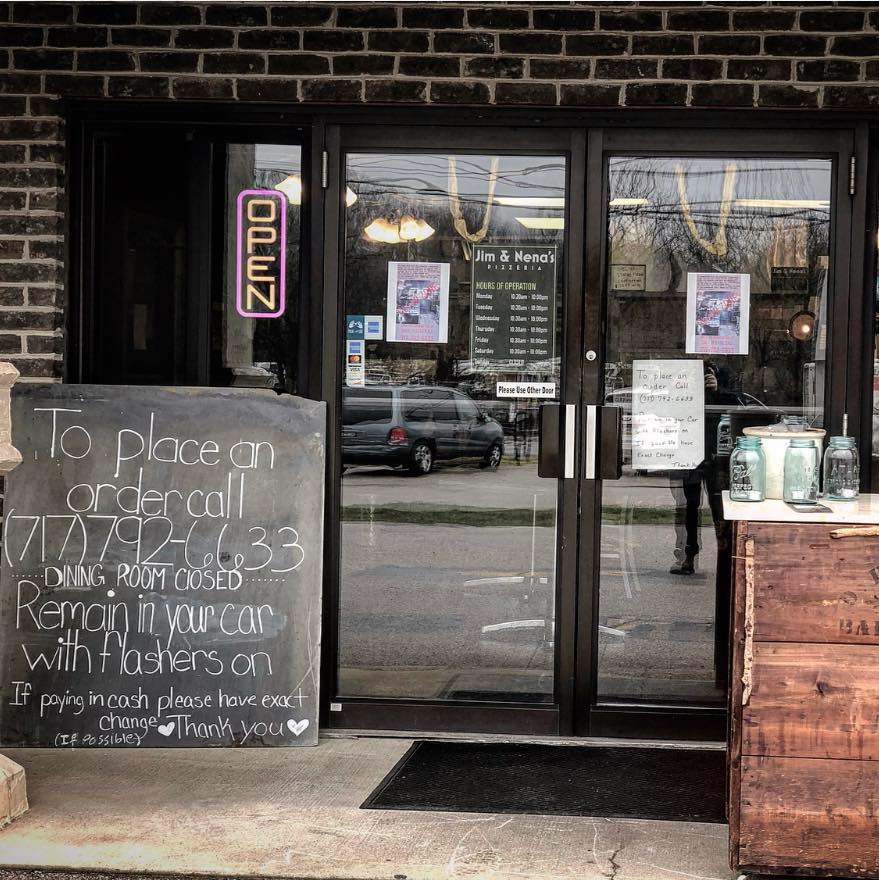 OPEN
Jim & Nena's
PIZZERIA
HOURS OF OPERATION
Monday 10:30am - 10:00pm
Tuesday 10:30am - 10:00pm
Wednesday 10:30am - 10:00pm
Thursday 10:30am - 10:00pm
Friday 10:30am - 10:00pm
Saturday 10:30am - 10:00pm
Please Use Other Door
VISA
To place an
order call
(717)792-6633
DINING ROOM CLOSED
Remain in your car
with flashers on
If paying in cash please have exact
change Thank you
(If Possible)
To place an
Order Call
(717) 792-6633
in your Car
Flashers on
If possible have
Exact Change
Thank
Ball